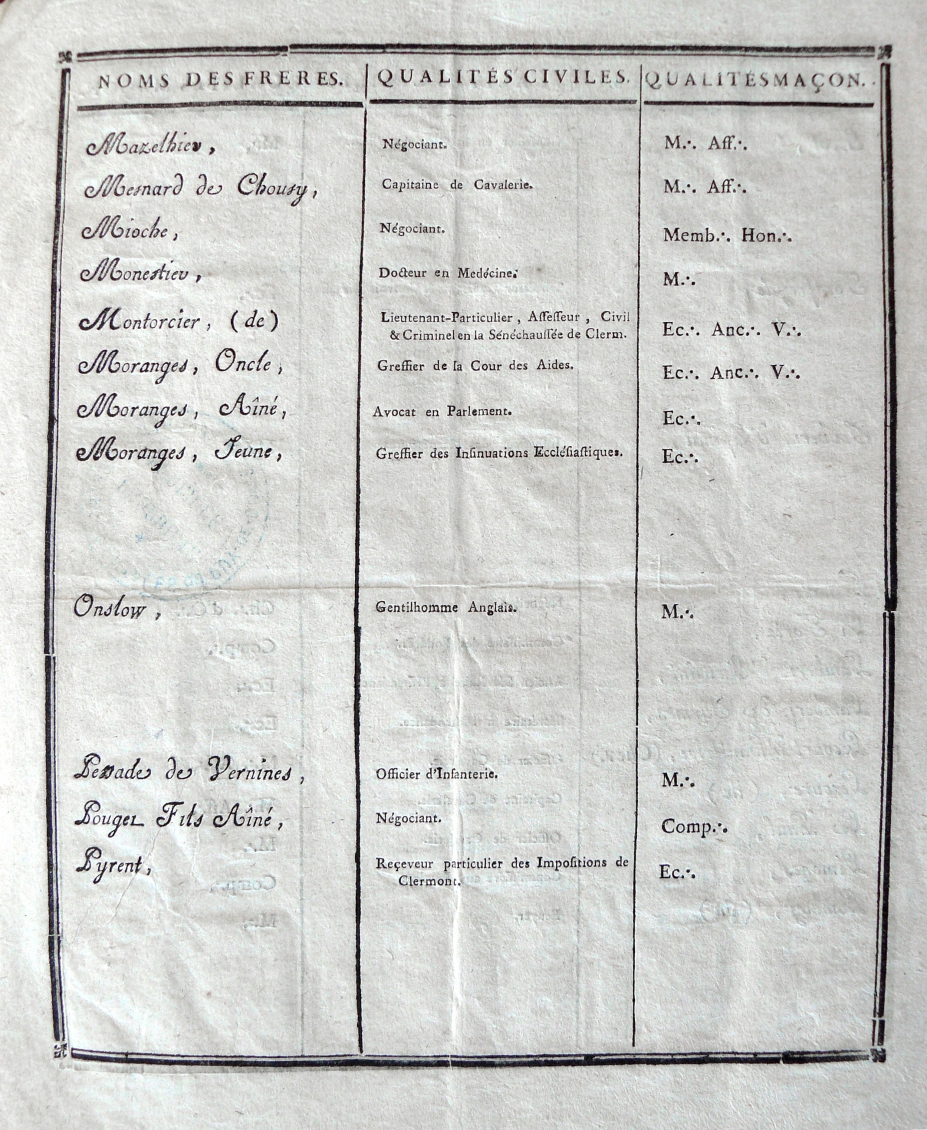 NOMS DES FRERES. QUALITÉS CIVILES. QUALITÉS MAÇON.
Mazelhier, Négociant. M.∴ Aff.∴
Mesnard de Chousy, Capitaine de Cavalerie. M.∴ Aff.∴
Mioche, Négociant. Memb.∴ Hon.∴
Monestier, Docteur en Medécine. M.∴
Montorcier, (de) Lieutenant-Particulier, Aſſeſſeur, Civil
& Criminel en la Sénéchauſſée de Clerm. Ec.∴ Anc.∴ V.∴
Moranges, Oncle, Greffier de la Cour des Aides. Ec.∴ Anc.∴ V.∴
Moranges, Aîné, Avocat en Parlement. Ec.∴
Moranges, Jeune, Greffier des Inſinuations Eccléſiaſtiques. Ec.∴
Onslow, Gentilhomme Anglais. M.∴
de Vernines, Officier d'Infanterie. M.∴
Pouget Fils Aîné, Négociant. Comp.∴
Pyrent, Reçeveur particulier des Impoſitions de
Clermont. Ec.∴